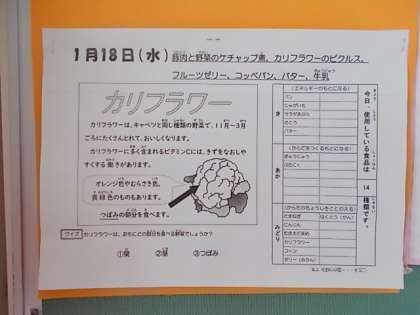 1月18日(水) 豚肉と野菜のケチャップ煮、カリフラワーのピクルス、
フルーツゼリー、コッペパン、バター、牛乳
カリフラワー
カリフラワーは、キャベツと同じ種類の野菜で、11月〜3月
ごろにたくさんとれて、おいしくなります。
カリフラワーに多く含まれるビタミンCには、きずをなおしや
すくする働きがあります。
オレンジ色やむらさき色、
黄緑色のものもあります。
つぼみの部分を食べます。
クイズ カリフラワーは、おもにどの部分を食べる野菜でしょうか?
①葉 ②茎 ③つぼみ
今日、使用している食品は 14 種類です。
き
(エネルギーのもとになる)
パン
じゃがいも
サラダあぶら
さとう
バター
あか
(からだをつくるもとになる)
ぎゅうにゅう
ぶたにく
みどり
(からだのちょうしをととのえる)
たまねぎ
にんじん
カリフラワー
コーン
ゼリー(みかん)